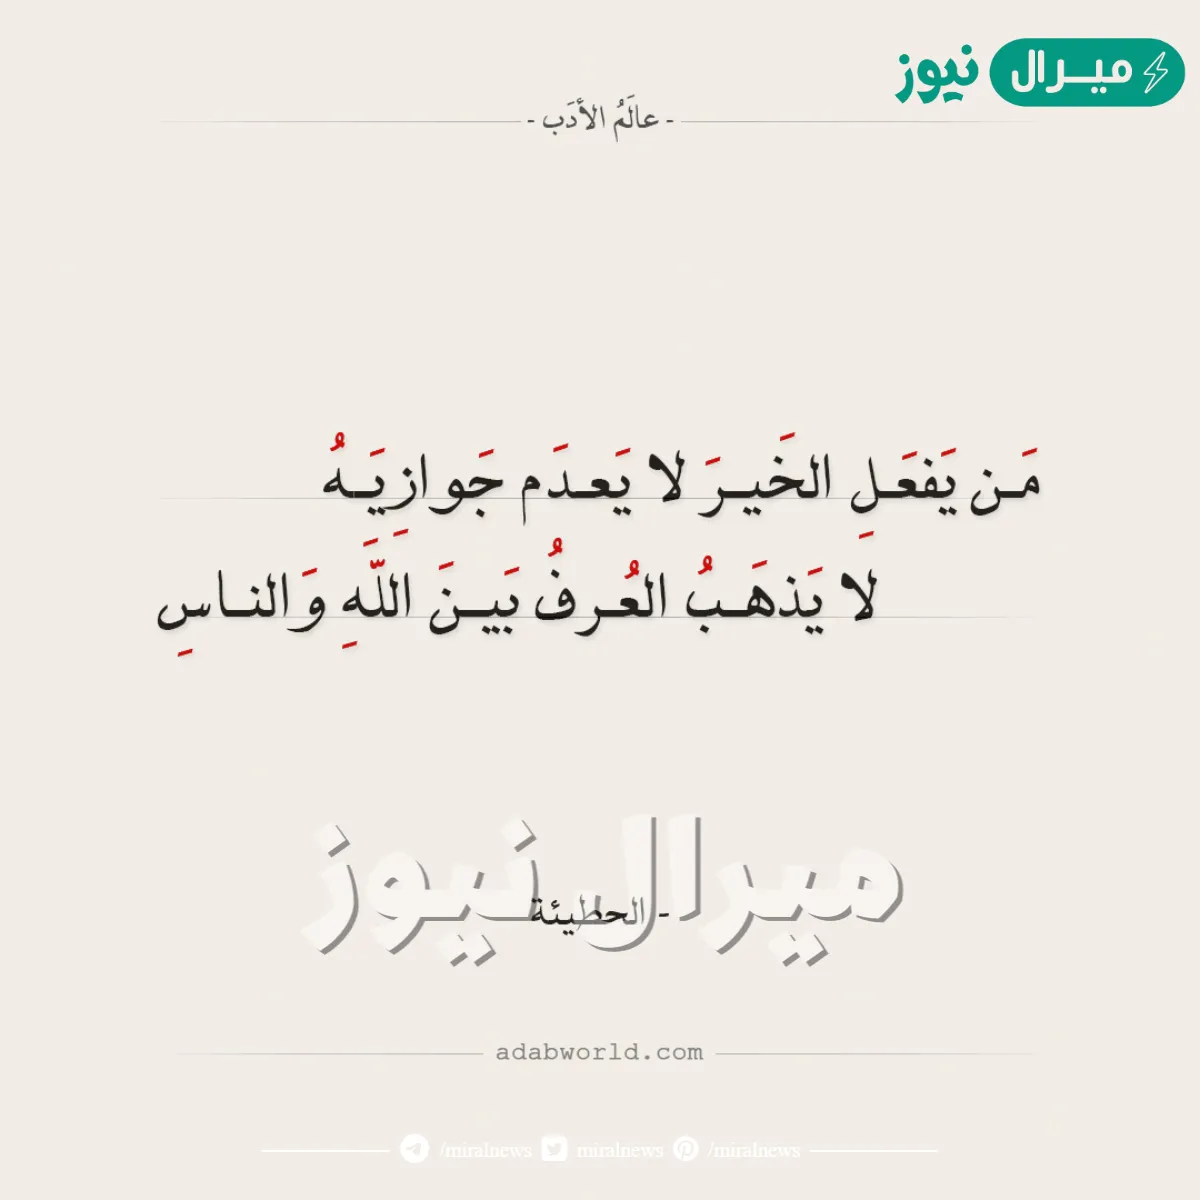 ميرال نيوز
- عالَمُ الأدَب -
مَن يَفعَلِ الخَيرَ لا يَعدَم جَوازِيَهُ
لا يَذهَبُ العُرفُ بَينَ اللَّهِ وَالناسِ
ميرال نيوز
- الحطيئة
adabworld.com
/miralnews miralnews /miralnews